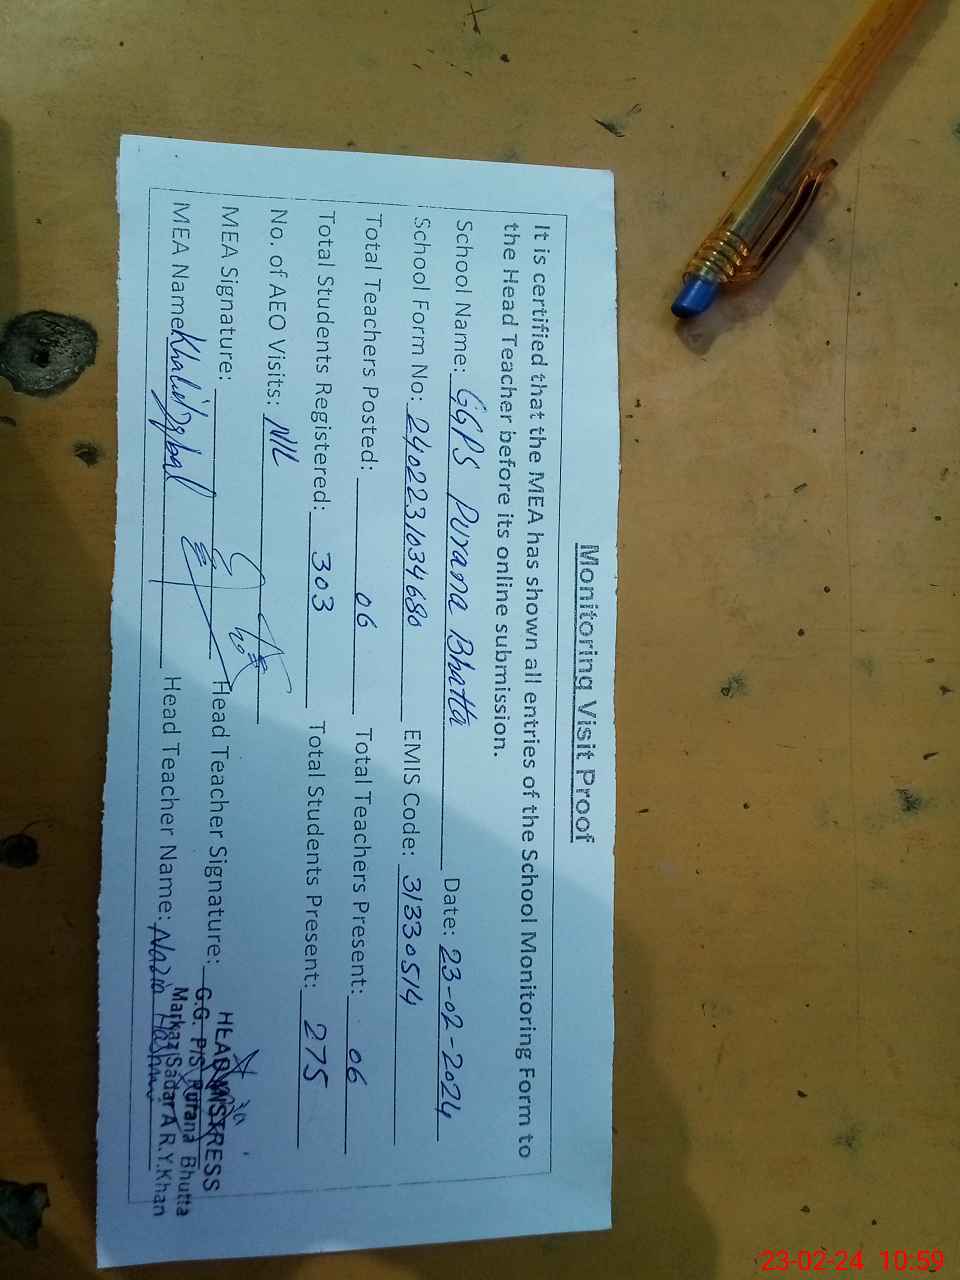 Monitoring Visit Proof
It is certified that the MEA has shown all entries of the School Monitoring Form to
the Head Teacher before its online submission.
School Name: GGPS Purana Bhatta Date: 23-02-2024
School Form No: 2402231034680 EMIS Code: 31330514
Total Teachers Posted: 06 Total Teachers Present: 06
Total Students Registered: 303 Total Students Present: 275
No. of AEO Visits: NIL
MEA Signature: Head Teacher Signature:
MEA Name: Khalid Iqbal Head Teacher Name: Nazia Hashmi
HEAD MISTRESS
G.G. P/S Purana Bhutta
Markaz Sadar A R.Y.Khan
23-02-24 10:59